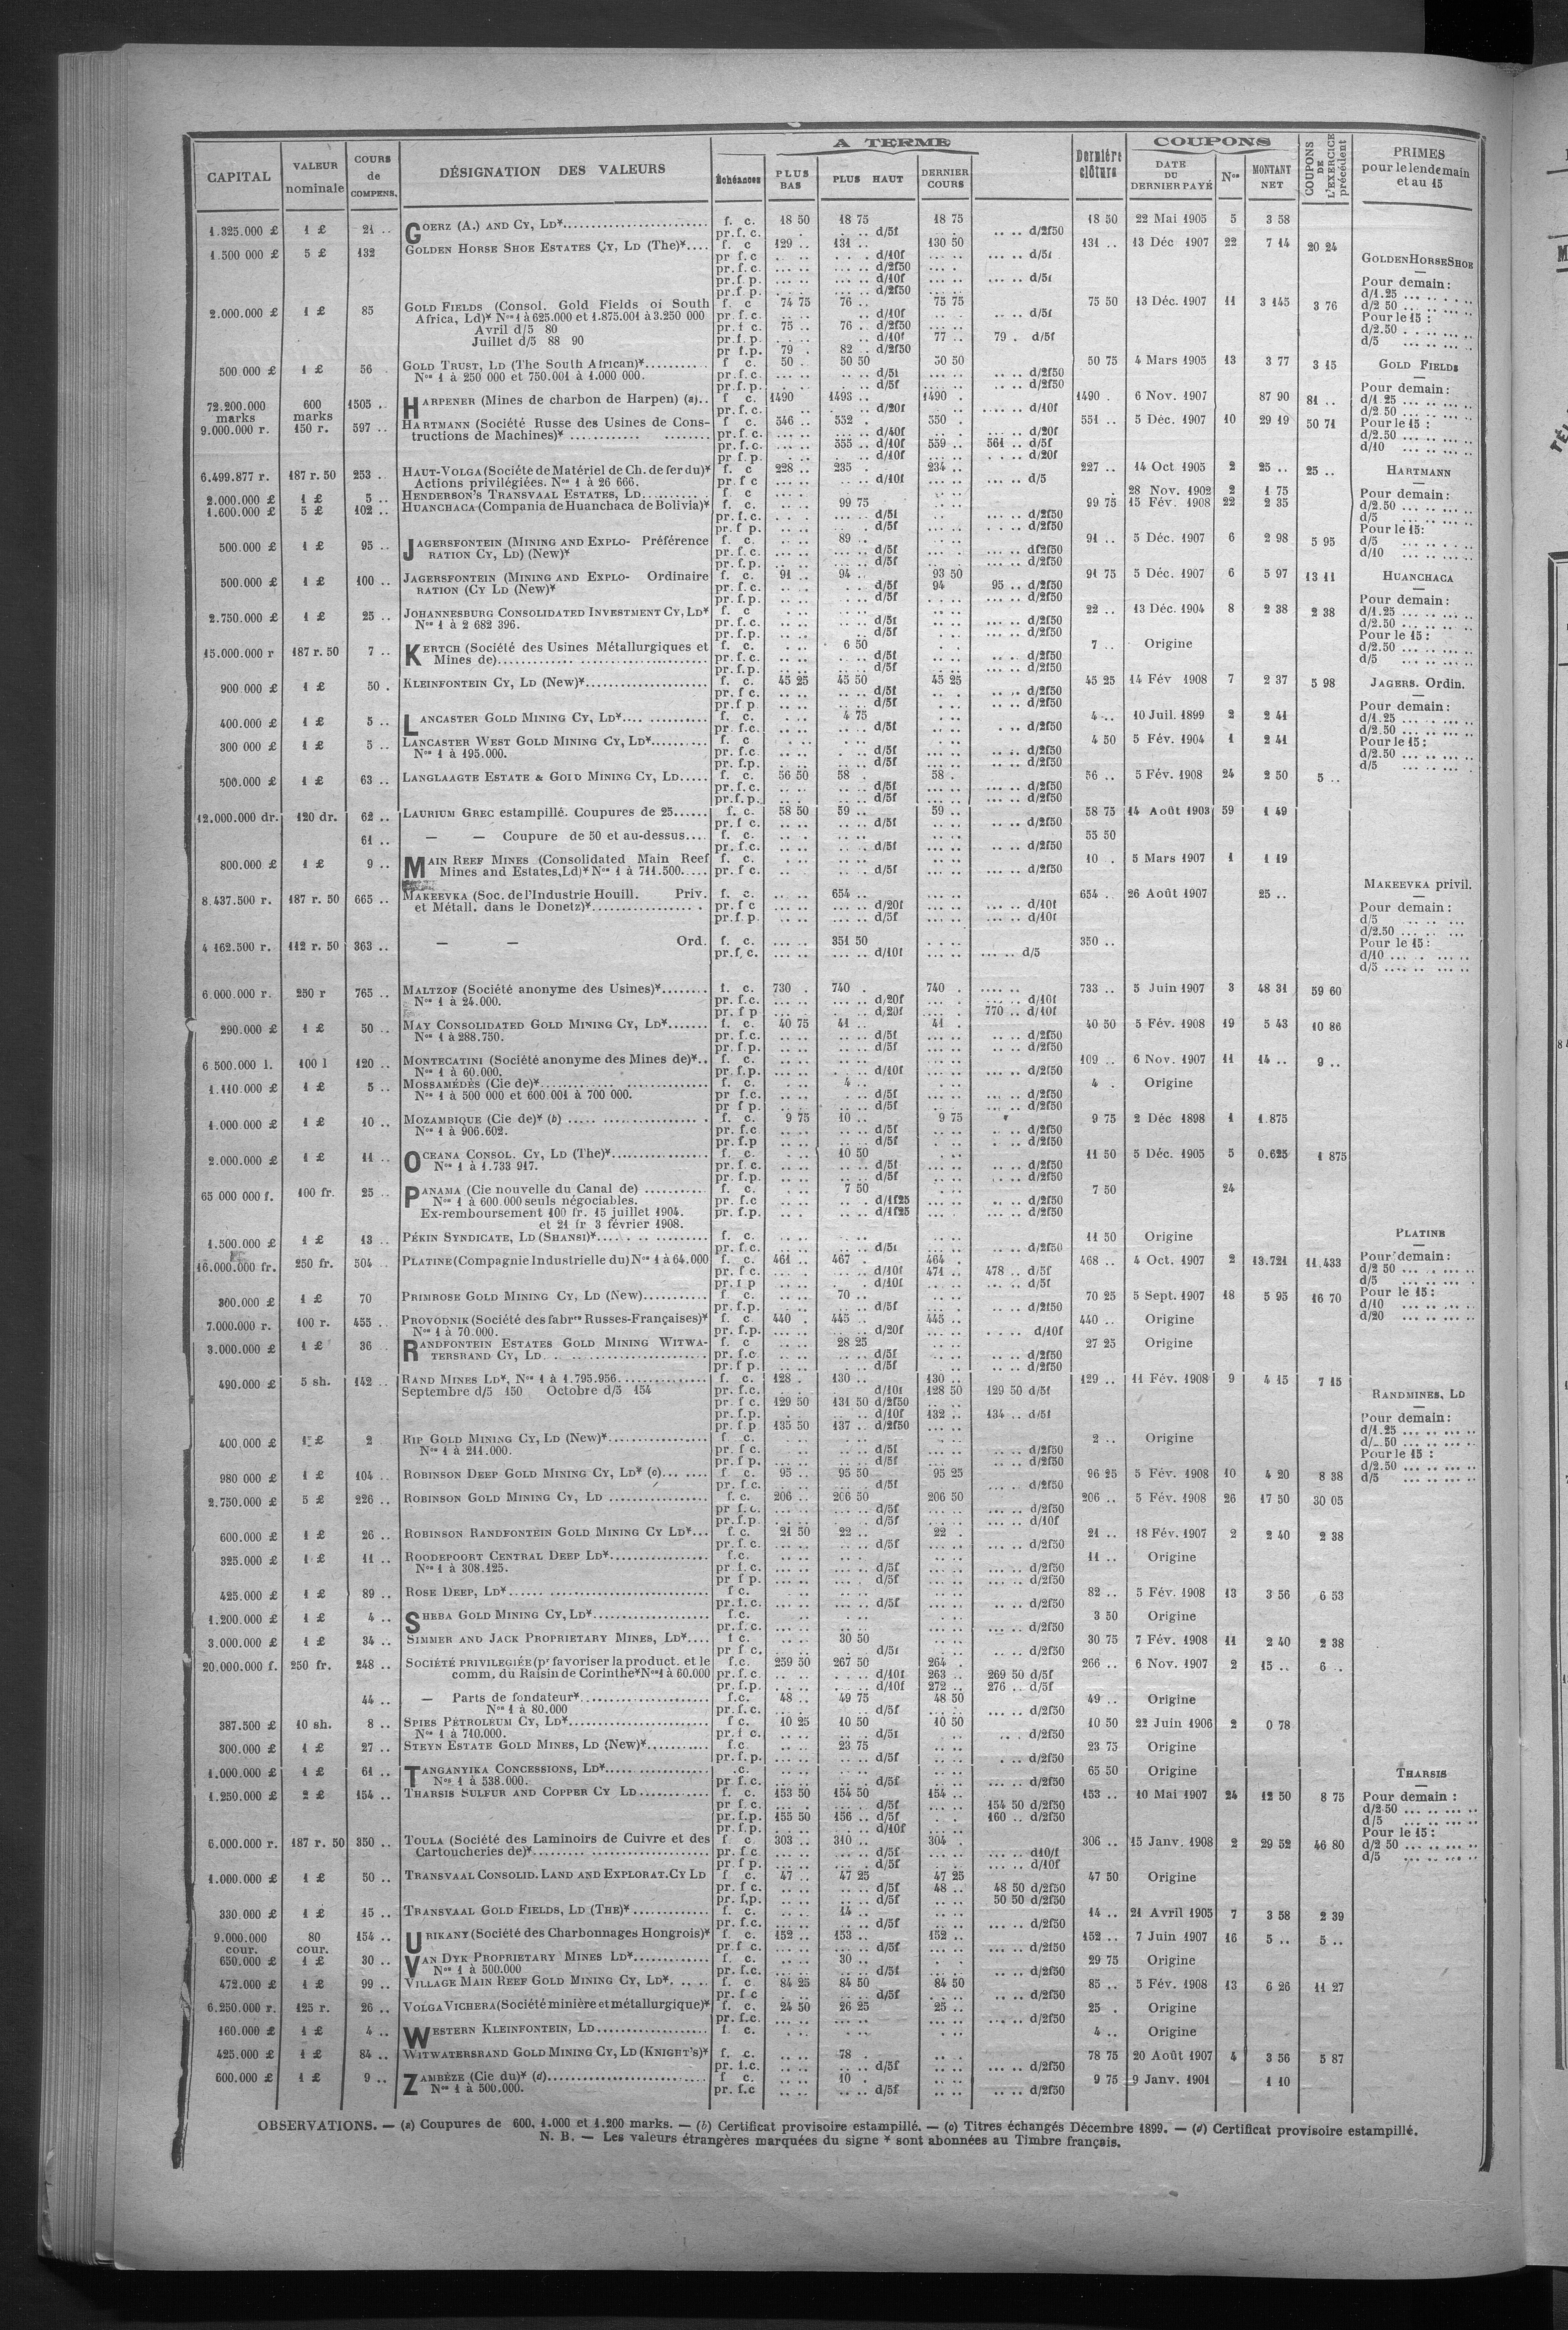 A TERME
COUPONS
CAPITAL
VALEUR nominale
COURS de COMPENS.
DÉSIGNATION DES VALEURS
Échéances
PLUS BAS
PLUS HAUT
DERNIER COURS
Dernière clôture
DATE DU DERNIER PAYÉ
Nos
MONTANT NET
COUPONS DE L'EXERCICE précédent
PRIMES pour le lendemain et au 15
1.325.000 £ 1 £ 21 .. GOERZ (A.) AND CY, LD* f. c. 18 50 18 75 18 75 18 50 22 Mai 1905 5 3 58
pr.f.c. d/5f d/2f50
1.500 000 £ 5 £ 132 GOLDEN HORSE SHOE ESTATES CY, LD (The)* f. c 129 .. 131 .. 130 50 131 .. 13 Déc 1907 22 7 14 20 24
pr f.c d/10f d/5f
pr.f.c. d/2f50
pr.f.p. d/10f d/5f
pr.f.p. d/2f50
2.000.000 £ 1 £ 85 GOLD FIELDS (Consol. Gold Fields of South f. c 74 75 76 .. 75 75 75 50 13 Déc. 1907 11 3 145 3 76
Africa, Ld)* Nos 1 à 625.000 et 1.875.001 à 3.250 000 pr.f.c. d/10f d/5f
Avril d/5 80 pr.f c. 75 .. 76 .. d/2f50
Juillet d/5 88 90 pr.f.p. d/10f 77 .. 79 . d/5f
pr f.p. 79 . 82 .. d/2f50
500 000 £ 1 £ 56 GOLD TRUST, LD (The South African)* f c. 50 . 50 50 50 50 50 75 4 Mars 1905 13 3 77 3 15
Nos 1 à 250 000 et 750.001 à 1.000 000. pr.f.c. d/5f d/2f50
pr.f.p. d/5f d/2f50
72.200.000 marks 600 marks 1505 .. HARPENER (Mines de charbon de Harpen) (a).. f c. 1490 1493 .. 1490 . 1490 . 6 Nov. 1907 87 90 81 ..
pr.f.c. d/20f d/10f
9.000.000 r. 150 r. 597 .. HARTMANN (Société Russe des Usines de Cons- f c. 546 .. 552 . 550 . 551 .. 5 Déc. 1907 10 29 19 50 71
tructions de Machines)* pr.f.c. d/40f d/20f
pr.f.c. 555 .. d/10f 559 .. 561 .. d/5f
pr f.p. d/10f d/20f
6.499.877 r. 187 r. 50 253 .. HAUT-VOLGA (Société de Matériel de Ch. de fer du)* f. c 228 .. 235 . 234 .. 227 .. 14 Oct 1905 2 25 .. 25 ..
Actions privilégiées. Nos 1 à 26 666. pr.f c d/10f d/5
2.000.000 £ 1 £ 5 .. HENDERSON'S TRANSVAAL ESTATES, LD f c 28 Nov. 1902 2 1 75
1.600.000 £ 5 £ 102 .. HUANCHACA (Compania de Huanchaca de Bolivia)* f. c. 99 75 99 75 15 Fév. 1908 22 2 35
pr.f.c. d/5f d/2f50
pr.f p. d/5f d/2f50
500.000 £ 1 £ 95 .. JAGERSFONTEIN (MINING AND EXPLO- Préférence f. c. 89 .. 91 .. 5 Déc. 1907 6 2 98 5 95
RATION CY, LD) (New)* pr.f.c. d/5f df2f50
pr.f.p. d/5f d/2f50
500.000 £ 1 £ 100 .. JAGERSFONTEIN (MINING AND EXPLO- Ordinaire f. c. 91 .. 94 .. 93 50 91 75 5 Déc. 1907 6 5 97 13 11
RATION (CY LD (New)* pr.f.c. d/5f 94 95 .. d/2f50
pr.f.p. d/5f d/2f50
2.750.000 £ 1 £ 25 .. JOHANNESBURG CONSOLIDATED INVESTMENT CY, LD* f. c 22 .. 13 Déc. 1904 8 2 38 2 38
Nos 1 à 2 682 396. pr.f.c. d/5f d/2f50
pr.f.p. d/5f d/2f50
15.000.000 r 187 r. 50 7 .. KERTCH (Société des Usines Métallurgiques et f. c. 6 50 7 .. Origine
Mines de) pr.f.c. d/5f d/2f50
pr.f.p. d/5f d/2f50
900 000 £ 1 £ 50 . KLEINFONTEIN CY, LD (New)* f. c. 45 25 45 50 45 25 45 25 14 Fév 1908 7 2 37 5 98
pr.f c. d/5f d/2f50
pr.f p d/5f d/2f50
400.000 £ 1 £ 5 .. LANCASTER GOLD MINING CY, LD* f. c. 4 75 4 .. 10 Juil. 1899 2 2 41
pr.f.c. d/5f d/2f50
300 000 £ 1 £ 5 .. LANCASTER WEST GOLD MINING CY, LD* f. c 4 50 5 Fév. 1904 1 2 41
Nos 1 à 195.000. pr.f.c d/5f d/2f50
pr.f.p. d/5f d/2f50
500.000 £ 1 £ 63 .. LANGLAAGTE ESTATE & GOLD MINING CY, LD f. c. 56 50 58 . 58 . 56 .. 5 Fév. 1908 24 2 50 5 ..
pr.f.c. d/5f d/2f50
pr.f.p. d/5f d/2f50
12.000.000 dr. 120 dr. 62 .. LAURIUM GREC estampillé. Coupures de 25 f. c. 58 50 59 .. 59 .. 58 75 14 Août 1903 59 1 49
pr.f c. d/5f d/2f50
61 .. — — Coupure de 50 et au-dessus f. c. 55 50
pr.f.c. d/5f d/2f50
800.000 £ 1 £ 9 .. MAIN REEF MINES (Consolidated Main Reef f. c. 10 . 5 Mars 1907 1 1 19
Mines and Estates, Ld)* Nos 1 à 711.500. pr.f c. d/5f d/2f50
8.437.500 r. 187 r. 50 665 .. MAKEEVKA (Soc. de l'Industrie Houill. Priv. f. c. 654 .. 654 .. 26 Août 1907 25 ..
et Métall. dans le Donetz)* pr.f c d/20f d/10f
pr.f.p. d/5f d/10f
4 162.500 r. 112 r. 50 363 .. — — Ord. f. c. 351 50 350 ..
pr.f, c. d/10f d/5
6.000.000 r. 250 r 765 .. MALTZOF (Société anonyme des Usines)* f. c. 730 . 740 . 740 . 733 .. 5 Juin 1907 3 48 31 59 60
Nos 1 à 24.000. pr.f.c. d/20f d/10f
pr.f p d/20f 770 .. d/10f
290.000 £ 1 £ 50 .. MAY CONSOLIDATED GOLD MINING CY, LD* f. c. 40 75 41 .. 41 . 40 50 5 Fév. 1908 19 5 43 10 86
Nos 1 à 288.750. pr.f.c. d/5f d/2f50
pr.f.p. d/5f d/2f50
6 500.000 l. 100 l 120 .. MONTECATINI (Société anonyme des Mines de)* f. c. 109 .. 6 Nov. 1907 11 14 .. 9 ..
Nos 1 à 60.000. pr.f.p. d/10f d/2f50
1.110.000 £ 1 £ 5 .. MOSSAMÉDÈS (Cie de)* f. c. 4 .. 4 . Origine
Nos 1 à 500 000 et 600 001 à 700 000. pr f.c. d/5f d/2f50
pr f p. d/5f d/2f50
1.000.000 £ 1 £ 10 .. MOZAMBIQUE (Cie de)* (b) f. c. 9 75 10 .. 9 75 9 75 2 Déc 1898 1 1.875
Nos 1 à 906.602. pr.f.c d/5f d/2f50
pr.f.p d/5f d/2f50
2.000.000 £ 1 £ 11 .. OCEANA CONSOL. CY, LD (The)* f. c. 10 50 11 50 5 Déc. 1905 5 0.625 1 875
Nos 1 à 1.733 917. pr.f.c. d/5f d/2f50
pr.f.p. d/5f d/2f50
65 000 000 f. 100 fr. 25 .. PANAMA (Cie nouvelle du Canal de) f. c. 7 50 7 50 24
Nos 1 à 600.000 seuls négociables. pr.f.c d/1f25 d/2f50
Ex-remboursement 100 fr. 15 juillet 1904. pr.f.p. d/1f25 d/2f50
et 21 fr 3 février 1908.
1.500.000 £ 1 £ 13 .. PÉKIN SYNDICATE, LD (SHANSI)* f. c. 11 50 Origine
pr.f.c. d/5f d/2f50
16.000.000 fr. 250 fr. 504 PLATINE (Compagnie Industrielle du) Nos 1 à 64.000 f. c. 461 .. 467 . 464 . 468 .. 4 Oct. 1907 2 13.721 11.433
pr.f c. d/10f 471 .. 478 .. d/5f
pr.f p d/10f d/5f
300.000 £ 1 £ 70 PRIMROSE GOLD MINING CY, LD (New) f c. 70 .. 70 25 5 Sept. 1907 18 5 95 16 70
pr.f.p. d/5f d/2f50
7.000.000 r. 100 r. 455 .. PROVODNIK (Société des fabres Russes-Françaises)* f. c 440 . 445 .. 445 .. 440 .. Origine
Nos 1 à 70.000. pr.f.p. d/20f d/10f
3.000.000 £ 1 £ 36 RANDFONTEIN ESTATES GOLD MINING WITWA- f. c 28 25 27 25 Origine
TERSRAND CY, LD pr.f.c d/5f d/2f50
pr.f p. d/5f d/2f50
490.000 £ 5 sh. 142 .. RAND MINES LD*, Nos 1 à 1.795.956. f. c. 128 . 130 .. 130 .. 129 .. 11 Fév. 1908 9 4 15 7 15
Septembre d/5 150 Octobre d/5 154 pr.f.c. d/10f 128 50 129 50 d/5f
pr.f c. 129 50 131 50 d/2f50
pr.f.p. d/10f 132 .. 134 .. d/5f
pr.f p 135 50 137 .. d/2f50
400.000 £ 1 £ 2 RIP GOLD MINING CY, LD (New)* f c. 2 .. Origine
Nos 1 à 211.000. pr.f c. d/5f d/2f50
pr.f p. d/5f d/2f50
980 000 £ 1 £ 104 .. ROBINSON DEEP GOLD MINING CY, LD* (c) f c. 95 .. 95 50 95 25 96 25 5 Fév. 1908 10 4 20 8 38
pr.f.c. d/5f d/2f50
2.750.000 £ 5 £ 226 .. ROBINSON GOLD MINING CY, LD f. c. 206 .. 206 50 206 50 206 .. 5 Fév. 1908 26 17 50 30 05
pr f.c. d/5f d/2f50
pr.f.p. d/5f d/10f
600.000 £ 1 £ 26 .. ROBINSON RANDFONTEIN GOLD MINING CY LD* f. c. 21 50 22 .. 22 . 21 .. 18 Fév. 1907 2 2 40 2 38
pr.f.c. d/5f d/2f50
325.000 £ 1 £ 11 .. ROODEPOORT CENTRAL DEEP LD* f.c. 11 .. Origine
Nos 1 à 308.125. pr.f.c. d/5f d/2f50
pr f p. d/5f d/2f50
425.000 £ 1 £ 89 .. ROSE DEEP, LD* f c. 82 .. 5 Fév. 1908 13 3 56 6 53
pr.f.c. d/5f d/2f50
1.200.000 £ 1 £ 4 .. SHEBA GOLD MINING CY, LD* f.c. 3 50 Origine
pr.f.c. d/2f50
3.000.000 £ 1 £ 34 .. SIMMER AND JACK PROPRIETARY MINES, LD* f c. 30 50 30 75 7 Fév. 1908 11 2 40 2 38
pr f c. d/5f d/2f50
20.000.000 f. 250 fr. 248 .. SOCIÉTÉ PRIVILEGIÉE (pr favoriser la product. et le f.c. 259 50 267 50 264 . 266 .. 6 Nov. 1907 2 15 .. 6 ..
comm. du Raisin de Corinthe* Nos 1 à 60.000 pr.f.c. d/10f 263 .. 269 50 d/5f
pr.f.p. d/10f 272 .. 276 .. d/5f
44 .. — Parts de fondateur* f.c. 48 .. 49 75 48 50 49 .. Origine
Nos 1 à 80.000 pr.f.c. d/5f d/2f50
387.500 £ 10 sh. 8 .. SPIES PÉTROLEUM CY, LD* f c. 10 25 10 50 10 50 10 50 22 Juin 1906 2 0 78
Nos 1 à 710.000. pr.f c. d/5f d/2f50
300.000 £ 1 £ 27 .. STEYN ESTATE GOLD MINES, LD (New)* f.c 23 75 23 75 Origine
pr.f.p. d/5f d/2f50
1.000.000 £ 1 £ 61 .. TANGANYIKA CONCESSIONS, LD* .c. 65 50 Origine
Nos 1 à 538.000. pr f.c. d/5f d/2f50
1.250.000 £ 2 £ 154 .. THARSIS SULFUR AND COPPER CY LD f. c. 153 50 154 50 154 .. 153 .. 10 Mai 1907 24 12 50 8 75
pr f c. d/5f 154 50 d/2f50
pr.f.p. 155 50 156 .. d/5f 160 .. d/2f50
pr.f.p. d/10f
6.000.000 r. 187 r. 50 350 .. TOULA (Société des Laminoirs de Cuivre et des f c. 303 .. 310 .. 304 . 306 .. 15 Janv. 1908 2 29 52 46 80
Cartoucheries de)* pr.f c d/5f d10/f
pr f p. d/5f d/10f
1.000.000 £ 1 £ 50 .. TRANSVAAL CONSOLID. LAND AND EXPLORAT. CY LD f c. 47 .. 47 25 47 25 47 50 Origine
pr.f c. d/5f 48 .. 48 50 d/2f50
pr. f,p. d/5f 50 50 d/2f50
330.000 £ 1 £ 15 .. TRANSVAAL GOLD FIELDS, LD (THE)* f. c. 14 .. 14 .. 21 Avril 1905 7 3 58 2 39
pr.f.c. d/5f d/2f50
9.000.000 cour. 80 cour. 154 .. URIKANY (Société des Charbonnages Hongrois)* f. c. 152 .. 153 .. 152 .. 152 .. 7 Juin 1907 16 5 .. 5 ..
pr.f c. d/5f d/2f50
650.000 £ 1 £ 30 .. VAN DYK PROPRIETARY MINES LD* f. c. 30 .. 29 75 Origine
Nos 1 à 500.000 pr.f.c. d/5f d/2f50
472.000 £ 1 £ 99 .. VILLAGE MAIN REEF GOLD MINING CY, LD* f. c 84 25 84 50 84 50 85 .. 5 Fév. 1908 13 6 26 11 27
pr f c d/5f d/2f50
6.250.000 r. 125 r. 26 .. VOLGA VICHERA (Société minière et métallurgique)* f. c. 24 50 26 25 25 .. 25 . Origine
pr.f.c. d/2f50
160.000 £ 1 £ 4 .. WESTERN KLEINFONTEIN, LD f. c. 4 .. Origine
425.000 £ 1 £ 84 .. WITWATERSRAND GOLD MINING CY, LD (KNIGHT'S)* f. c. 78 . 78 75 20 Août 1907 4 3 56 5 87
pr. f.c. d/5f d/2f50
600.000 £ 1 £ 9 .. ZAMBÈZE (Cie du)* (d) f c. 10 . 9 75 9 Janv. 1901 1 10
Nos 1 à 500.000. pr.f.c d/5f d/2f50
GOLDEN HORSE SHOE
Pour demain:
d/1.25
d/2 50
Pour le 15 :
d/2.50
d/5
GOLD FIELDS
Pour demain:
d/1 25
d/2.50
Pour le 15 :
d/2.50
d/10
HARTMANN
Pour demain:
d/2.50
d/5
Pour le 15:
d/5
d/10
HUANCHACA
Pour demain:
d/1.25
d/2.50
Pour le 15 :
d/2.50
d/5
JAGERS. Ordin.
Pour demain:
d/1.25
d/2.50
Pour le 15 :
d/2.50
d/5
MAKEEVKA privil.
Pour demain:
d/5
d/2.50
Pour le 15:
d/10
d/5
PLATINE
Pour demain:
d/2 50
d/5
Pour le 15:
d/10
d/20
RANDMINES, LD
Pour demain:
d/1.25
d/_.50
Pour le 15 :
d/2.50
d/5
THARSIS
Pour demain :
d/2.50
d/5
Pour le 15 :
d/2 50
d/5
OBSERVATIONS. — (a) Coupures de 600, 1.000 et 1.200 marks. — (b) Certificat provisoire estampillé. — (c) Titres échangés Décembre 1899. — (d) Certificat provisoire estampillé.
N. B. — Les valeurs étrangères marquées du signe * sont abonnées au Timbre français.